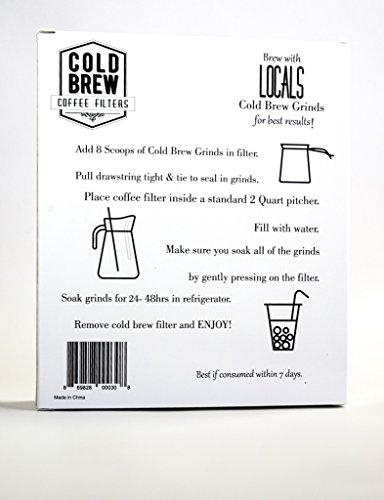 COLD
BREW
COFFEE FILTERS
Brew with
LOCALS
Cold Brew Grinds
for best results!
Add 8 Scoops of Cold Brew Grinds in filter.
Pull drawstring tight & tie to seal in grinds.
Place coffee filter inside a standard 2 Quart pitcher.
Fill with water.
Make sure you soak all of the grinds
by gently pressing on the filter.
Soak grinds for 24- 48hrs in refrigerator.
Remove cold brew filter and ENJOY!
8 69828 00030 8
Made in China
Best if consumed within 7 days.